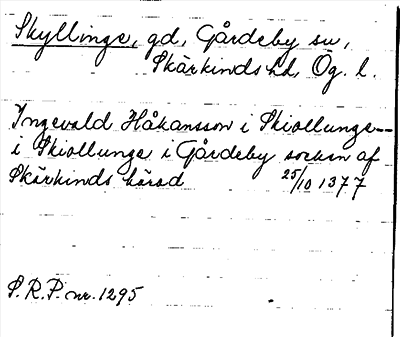 Skyllinge, gd, Gårdeby sn,
Skärkinds hd, Ög. l.
Ingevald Håkansson i Skiollunge --
i Skiollunge i Gårdeby socken af
Skärkinds härad 25/10 1377
S.R.P. nr. 1295